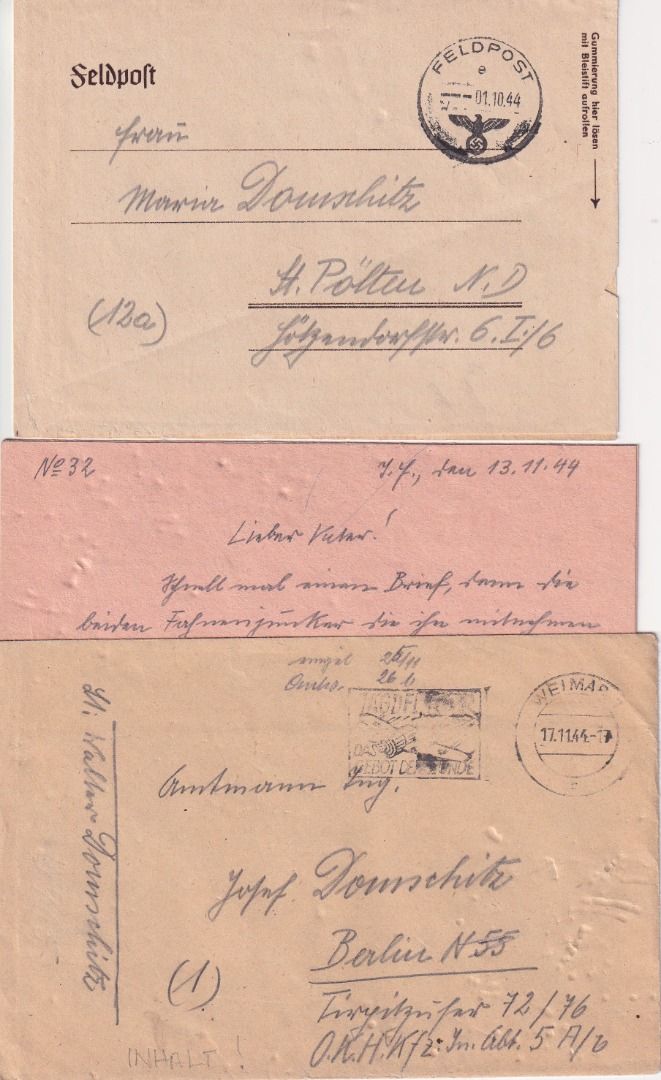 Feldpost
FELDPOST
e
01.10.44
Gummierung hier lösen
mit Bleistift aufrollen
Frau
Maria Domschitz
St. Pölten N.D
(12a)
Hötzendorfstr. 6. I./6
No 32
den 13.11.44
Lieber Vater!
Schnell mal einen Brief, denn die
beiden Fahnenjunker die ihn mitnehmen
25/11
26.11
DAS
GEBOT DER STUNDE
WEIMAR
17.11.44-17
Lt. Walter Domschitz
Amtmann Ing.
Josef Domschitz
Berlin N 55
(1)
Tirpitzufer 72/76
O.K.H. Kfz. In. Abt. 5
INHALT!